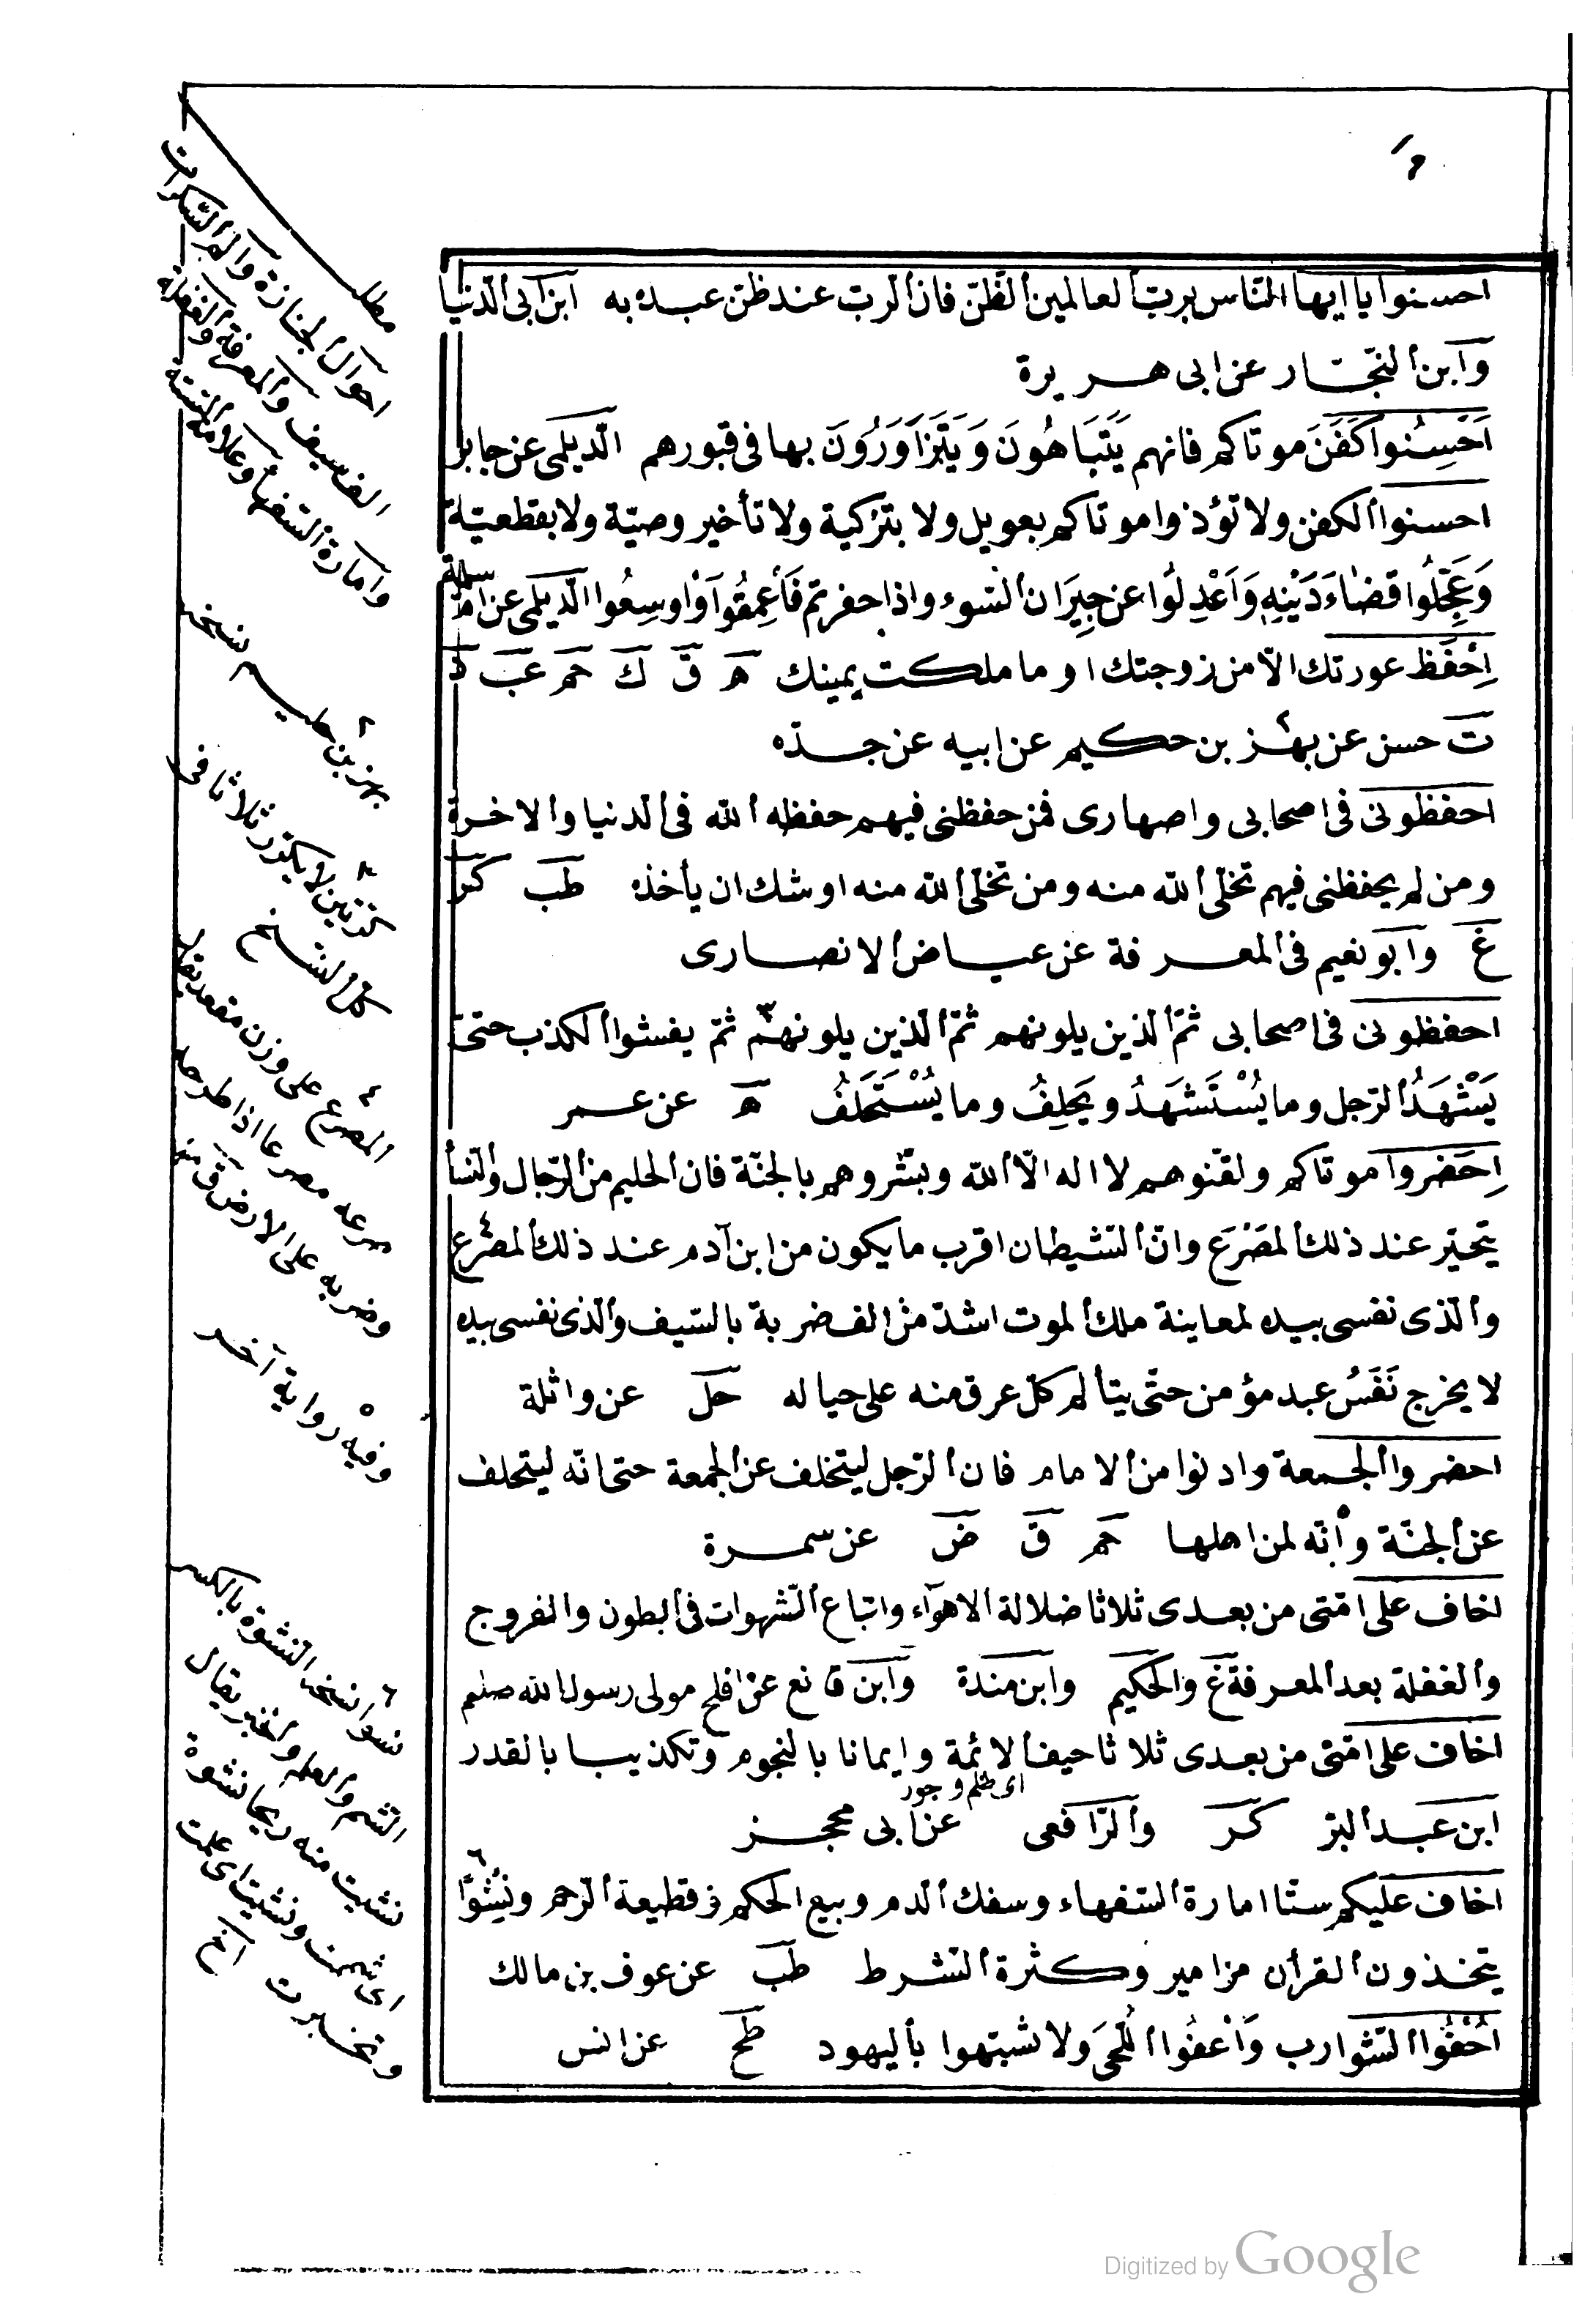 احسنوا يا ايها الناس برب العالمين الظن فان الرب عند ظن عبده به ابن ابى الدنيا
وابن النجار عن ابى هريرة
اَحْسِنُوا كَفَنَ موتاكم فانهم يَتَبَاهُونَ وَيَتَزَاوَرُونَ بها فى قبورهم الديلمى عن جابر
احسنوا الكفن ولا تؤذوا موتاكم بعويل ولا بتزكية ولا تأخير وصية ولا بقطعية
وَعَجِّلُوا قضاءَ دَيْنِهِ وَاَعْدِلُوا عن جِيرَان السوء واذا حفرتم فَأَعْمِقُوا وَاوسِعُوا الديلمى عن ام سلمة
اِحْفَظ عورتك الا من زوجتك او ما ملكت يمينك هـ ق ك حم عب د
ت حسن عن بهز٢ بن حكيم عن ابيه عن جده
احفظونى فى اصحابى واصهارى فمن حفظنى فيهم حفظه الله فى الدنيا والاخرة
ومن لم يحفظنى فيهم تخلى الله منه ومن تخلى الله منه اوشك ان يأخذه طب كر
غ وابو نعيم فى المعرفة عن عياض الانصارى
احفظونى فى اصحابى ثم الذين يلونهم ثم الذين يلونهم٣ ثم يفشوا الكذب حتى
يَشْهَدُ الرجل وما يُسْتَشهَدُ ويَحلِفُ وما يُسْتَحْلَفُ هـ عن عمر
اِحضَروا موتاكم ولقنوهم لا اله الا الله وبشروهم بالجنة فان الحليم من الرجال والنسا
يتحير عند ذلك المَصْرَع وان الشيطان اقرب ما يكون من ابن آدم عند ذلك المصرع٤
والذى نفسى بيده لمعاينة ملك الموت اشد من الف ضربة بالسيف والذى نفسى بيده
لا يخرج نَفَسُ عبد مؤمن حتى يتألم كل عرق منه على حياله حل عن واثلة
احضروا الجمعة وادنوا من الامام فان الرجل ليتخلف عن الجمعة حتى انه ليتخلف
عن الجنة وانه٥ لمن اهلها حم ق ض عن سمرة
اخاف على امتى من بعدى ثلاثا ضلالة الاهوآء واتباع الشهوات فى البطون والفروج
والغفلة بعد المعرفة غ والحكيم وابن مندة وابن قانع عن افلح مولى رسول الله صلعم
اخاف على امتى من بعدى ثلاثا حيف الائمة وايمانا بالنجوم وتكذيبا بالقدر
اى ظلم وجور
ابن عبد البر كر والرافعى عن ابى محجز
اخاف عليكم ستا امارة السفهاء وسفك الدم وبيع الحكم وقطيعة الرحم ونشوا٦
يتخذون القرأن مزامير وكثرة الشرط طب عن عوف بن مالك
اَحْفُوا الشوارب وَاَعفُوا اللُحىَ ولا تشبهوا باليهود طح عن انس
مطلب
احوال الجنازة والم السكرات
الف سيف والمعرفة والغفلة
وامارة السفها وعلامة الستة
٢
بهز بن حكيم نسخه
كل النسخ
٤
المصرع على وزن مقعد يقال
صرعه مصرعا اذا طرحه
وضربه على الارض
٥
وفيه رواية آخر
٦
نسوا نسخه النشوة بالكسر
الشم والعلم والخبر يقال
نشيت منه ريحا نشوة
اى شممت ونشيت اى علمت
وتخبرت الخ
Digitized by Google